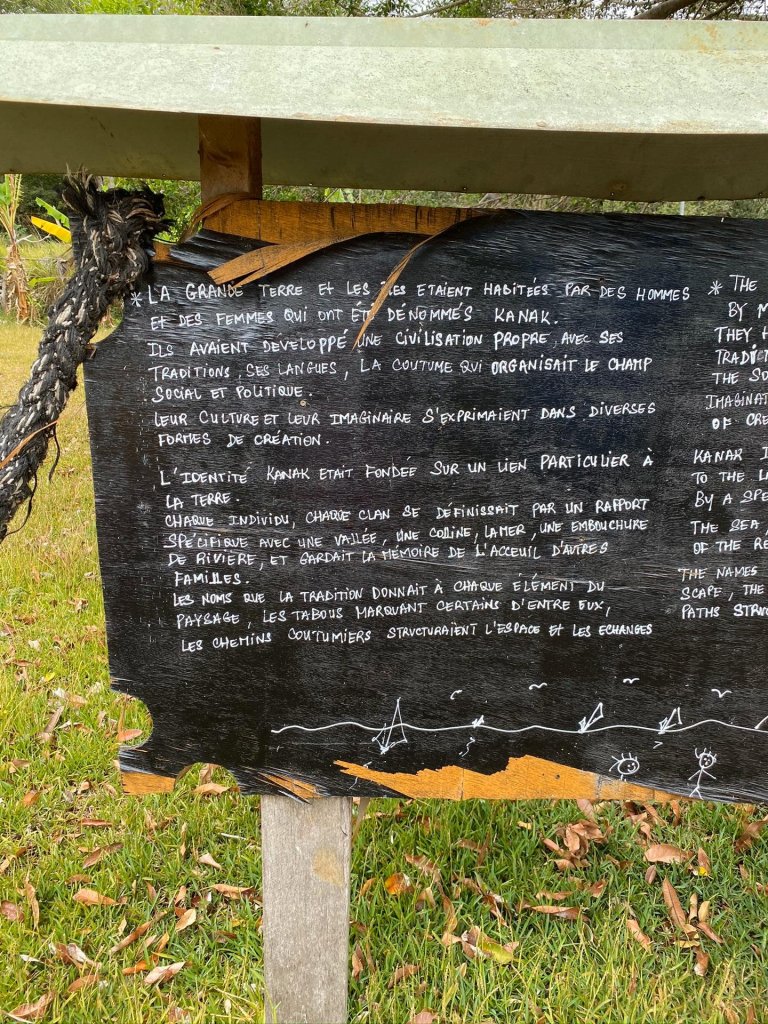 * LA GRANDE TERRE ET LES ILES ETAIENT HABITÉES PAR DES HOMMES
ET DES FEMMES QUI ONT ÉTÉ DÉNOMMÉS KANAK.
ILS AVAIENT DEVELOPPÉ UNE CIVILISATION PROPRE, AVEC SES
TRADITIONS, SES LANGUES, LA COUTUME QUI ORGANISAIT LE CHAMP
SOCIAL ET POLITIQUE.
LEUR CULTURE ET LEUR IMAGINAIRE S'EXPRIMAIENT DANS DIVERSES
FORMES DE CRÉATION.
L'IDENTITÉ KANAK ETAIT FONDÉE SUR UN LIEN PARTICULIER À
LA TERRE.
CHAQUE INDIVIDU, CHAQUE CLAN SE DÉFINISSAIT PAR UN RAPPORT
SPÉCIFIQUE AVEC UNE VALLÉE, UNE COLLINE, LA MER, UNE EMBOUCHURE
DE RIVIÈRE, ET GARDAIT LA MÉMOIRE DE L'ACCEUIL D'AUTRES
FAMILLES.
LES NOMS QUE LA TRADITION DONNAIT À CHAQUE ÉLÉMENT DU
PAYSAGE, LES TABOUS MARQUANT CERTAINS D'ENTRE EUX,
LES CHEMINS COUTUMIERS STRUCTURAIENT L'ESPACE ET LES ECHANGES
* THE
BY
THEY
THE
OF
KANAK
TO THE
BY A
THE SEA,
OF THE
THE NAMES
SCAPE, THE
PATHS